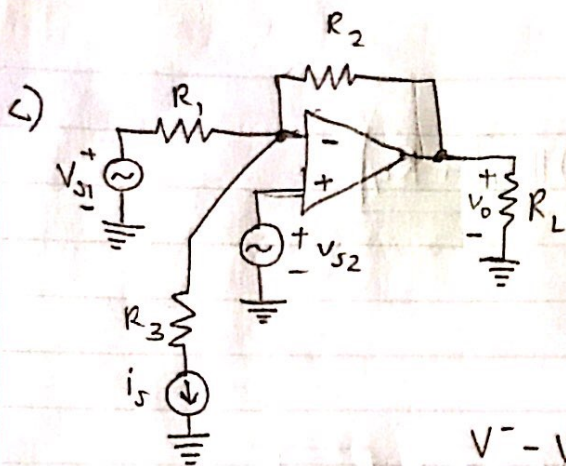 c)
R₂
R₁
V_{s1} + -
-
+
+ - v_{s2}
+ v_o - R_L
R₃
i_s
V⁻ - V